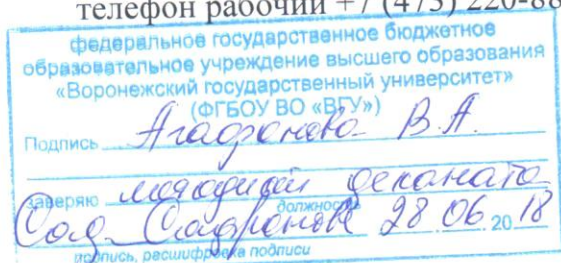 телефон рабочий +7 (473) 220-88
федеральное государственное бюджетное
образовательное учреждение высшего образования
«Воронежский государственный университет»
(ФГБОУ ВО «ВГУ»)
Подпись В.А.
заверяю деканата
должность
28 06 20 18
подпись, расшифровка подписи